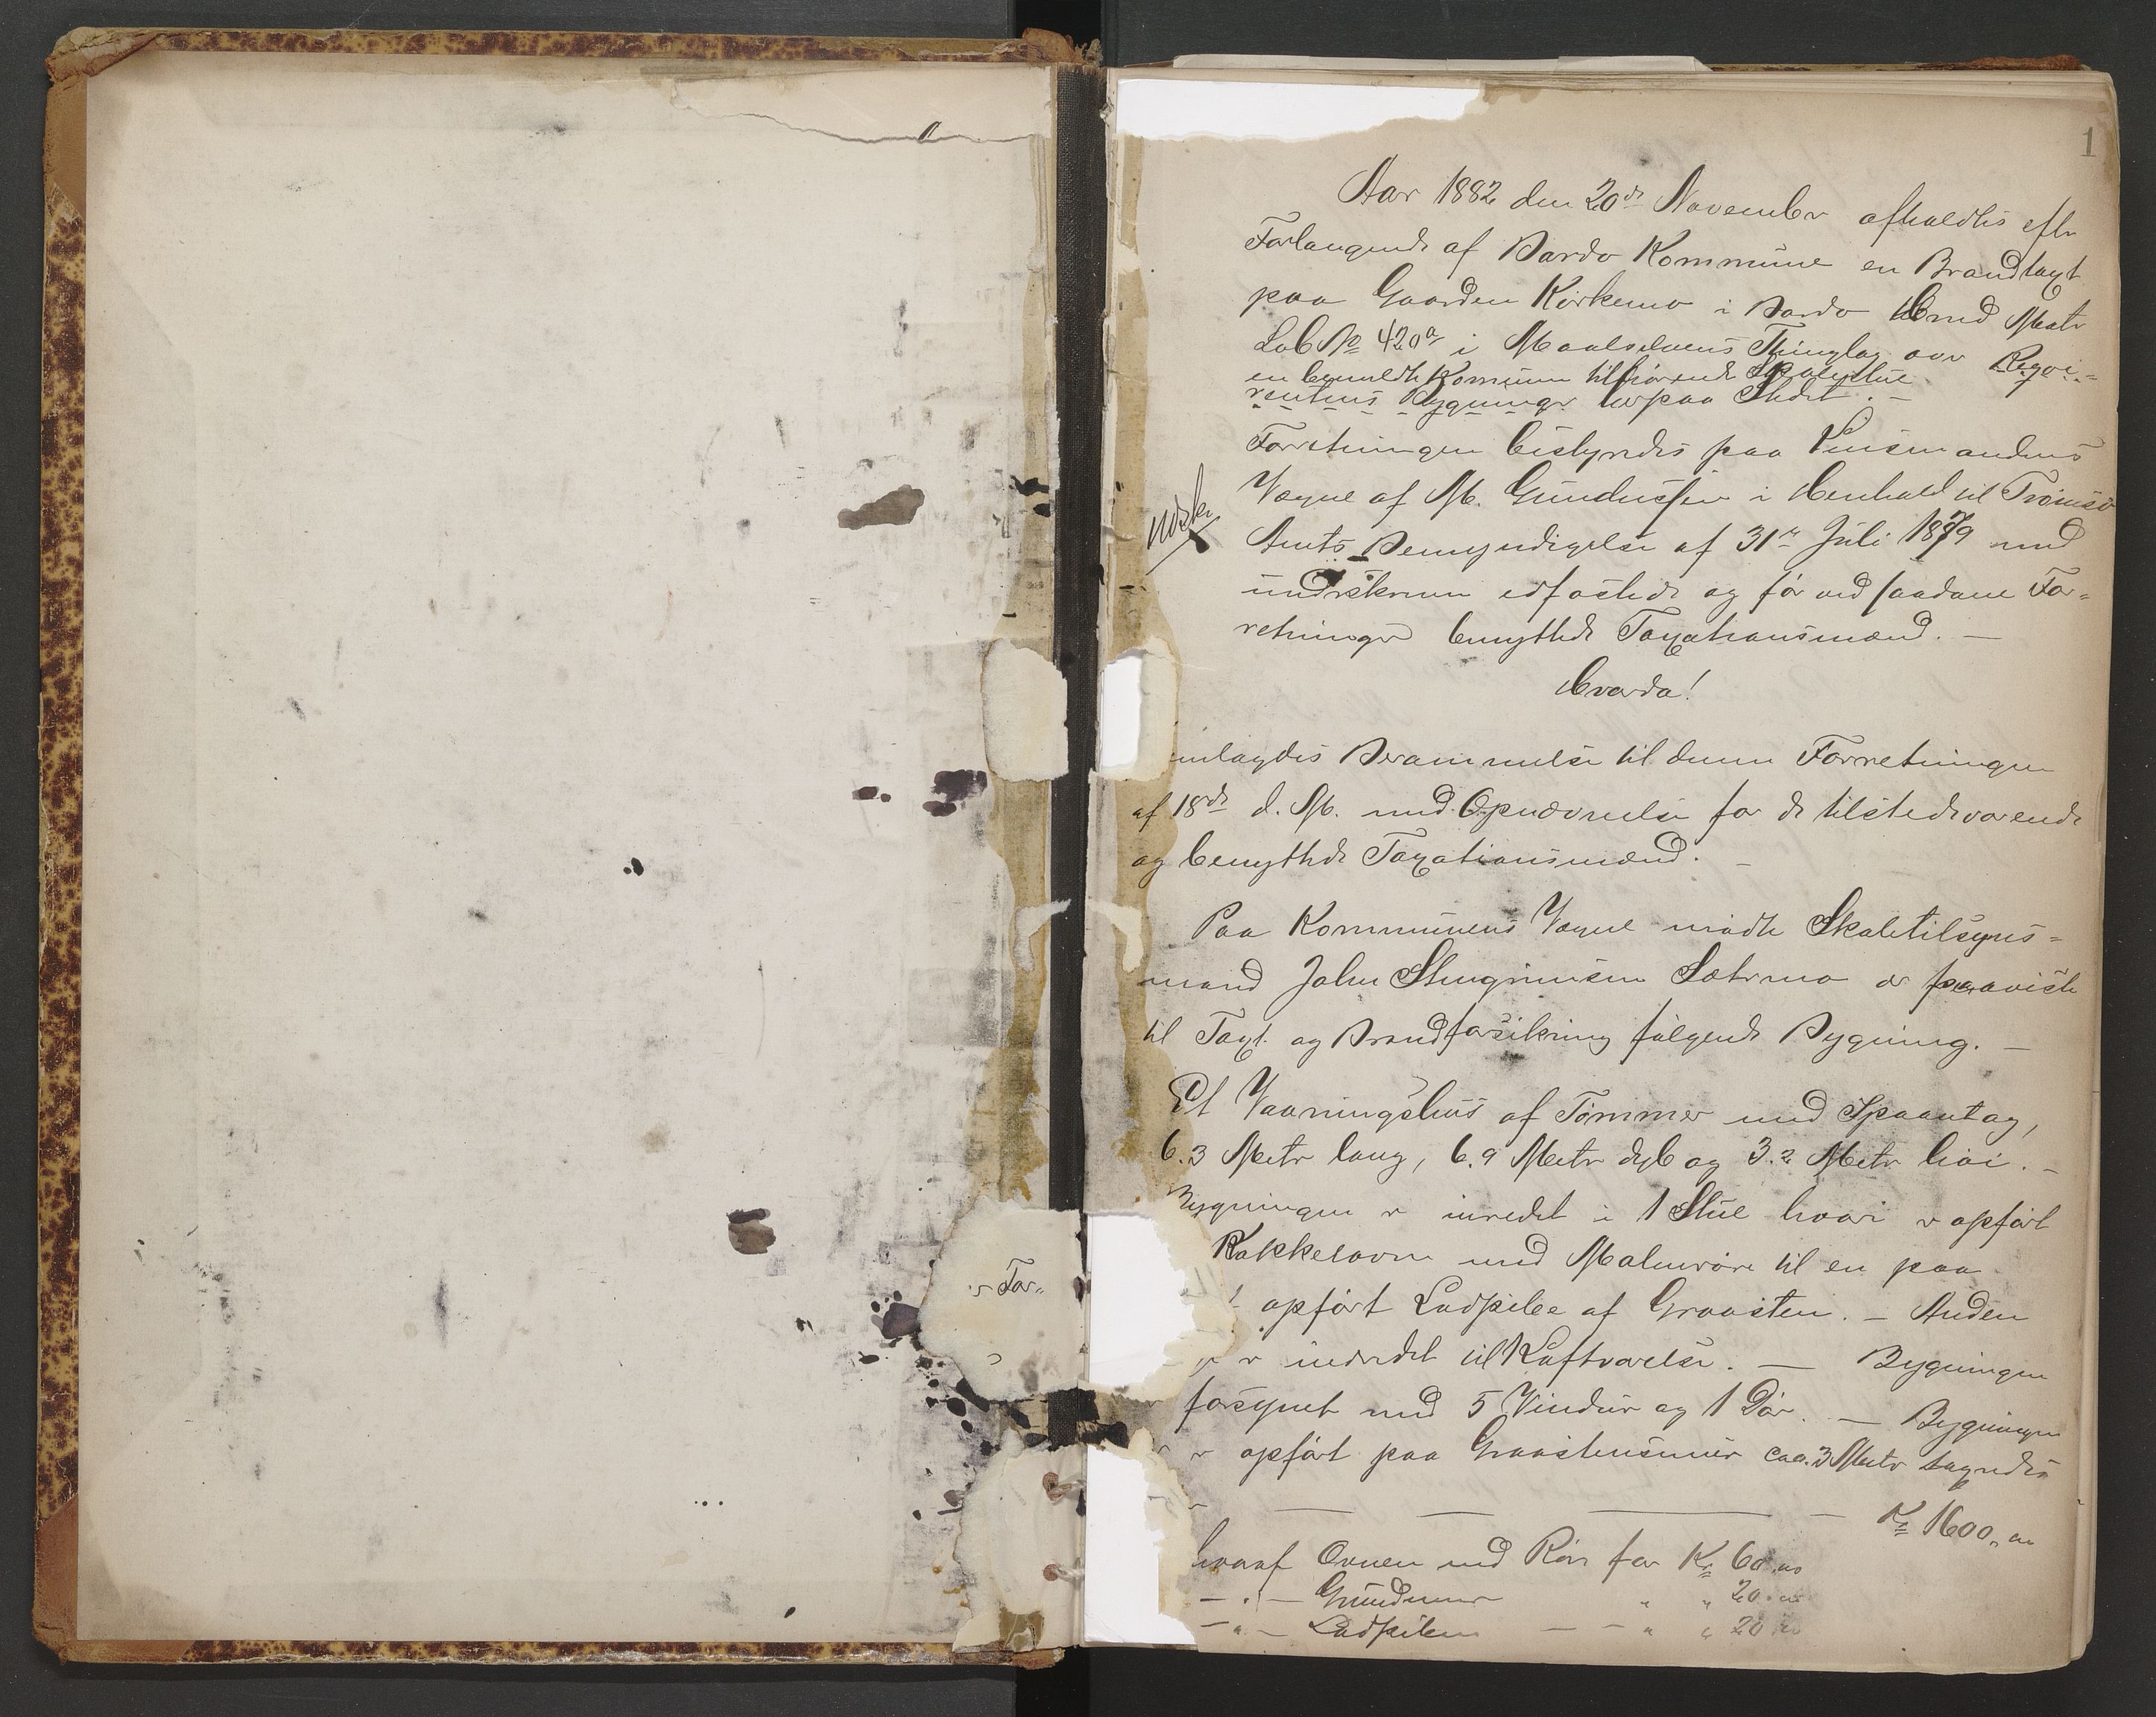 1
Aar 1882 den 20de November afholdtes efter
Forlangende af Bardo Kommune en Brandtaxt
paa Gaarden Kirkemo i Bardo Herred Matr
Løb № 420a i Maalselvens Thinglag over Reqvi-
en bemeldte Kommune tilhørende Skolestue
rentens Bygninger herpaa Stedet. –
Forretningen bestyredes paa Lensmandens
Vegne af M. Gundersen i Henhold til Tromsø
Amts Bemyndigelse af 31te Juli 1879 med
undskrevne edfæstede og før ved saadane For-
retninger benyttede Taxationsmænd. –
Hvorda!
emlagdes Berammelse til denne Forretningen
af 18de d. M. med Opnævnelse for de tilstedeværende
og benyttede Taxationsmænd. –
Paa Kommunens Vegne mødte Skoletilsyns-
mand John Stengrimsen Sætermo og paaviste
til Taxt og Brandforsikring følgende Bygning. –
Et Vaaningshus af Tømmer med Spaantag,
6.3 Meter lang, 6.9 Meter dyb og 3.2 Meter høi. –
Bygningen er inredet i 1 Stue hvori er opført
Kakkelovn med Malmrør til en paa
opført Ladpibe af Graasten. – Anden
er indredet til Loftværelse. – Bygningen
forsynet med 5 Vinduer og 1 Dør. – Bygningen
er opført paa Graastensmuur caa. 3 Meter
Kr 1600,00
hvoraf Ovnen med Rør for Kr 60,00
– " – Grundmur " " 20,00
– " – Ladpiben – – " " 20,00
er For-